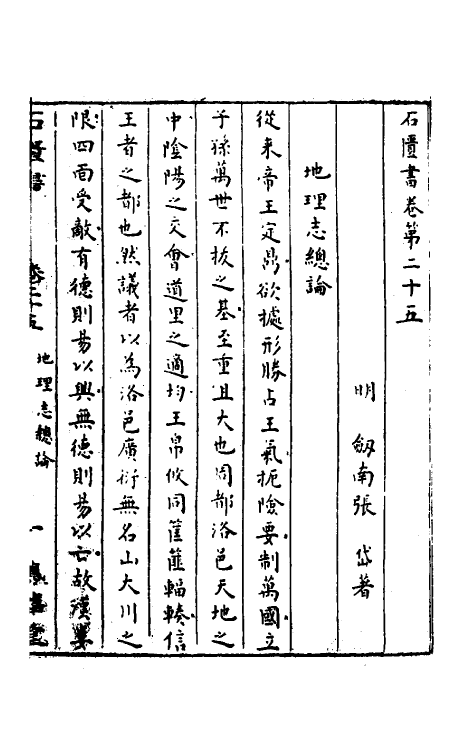 石匱書卷第二十五
明　劔南張　岱著
地理志總論
從来帝王定鼎欲據形勝占王氣扼險要制萬國立
子孫萬世不拔之基至重且大也周都洛邑天地之
中陰陽之交會道里之適均王帛攸同筐篚輻輳信
王者之都也然議者以為洛邑廣衍無名山大川之
限四面受敵有德則易以興無德則易以亡故漢
石匱書　卷二十五　地理志總論　一